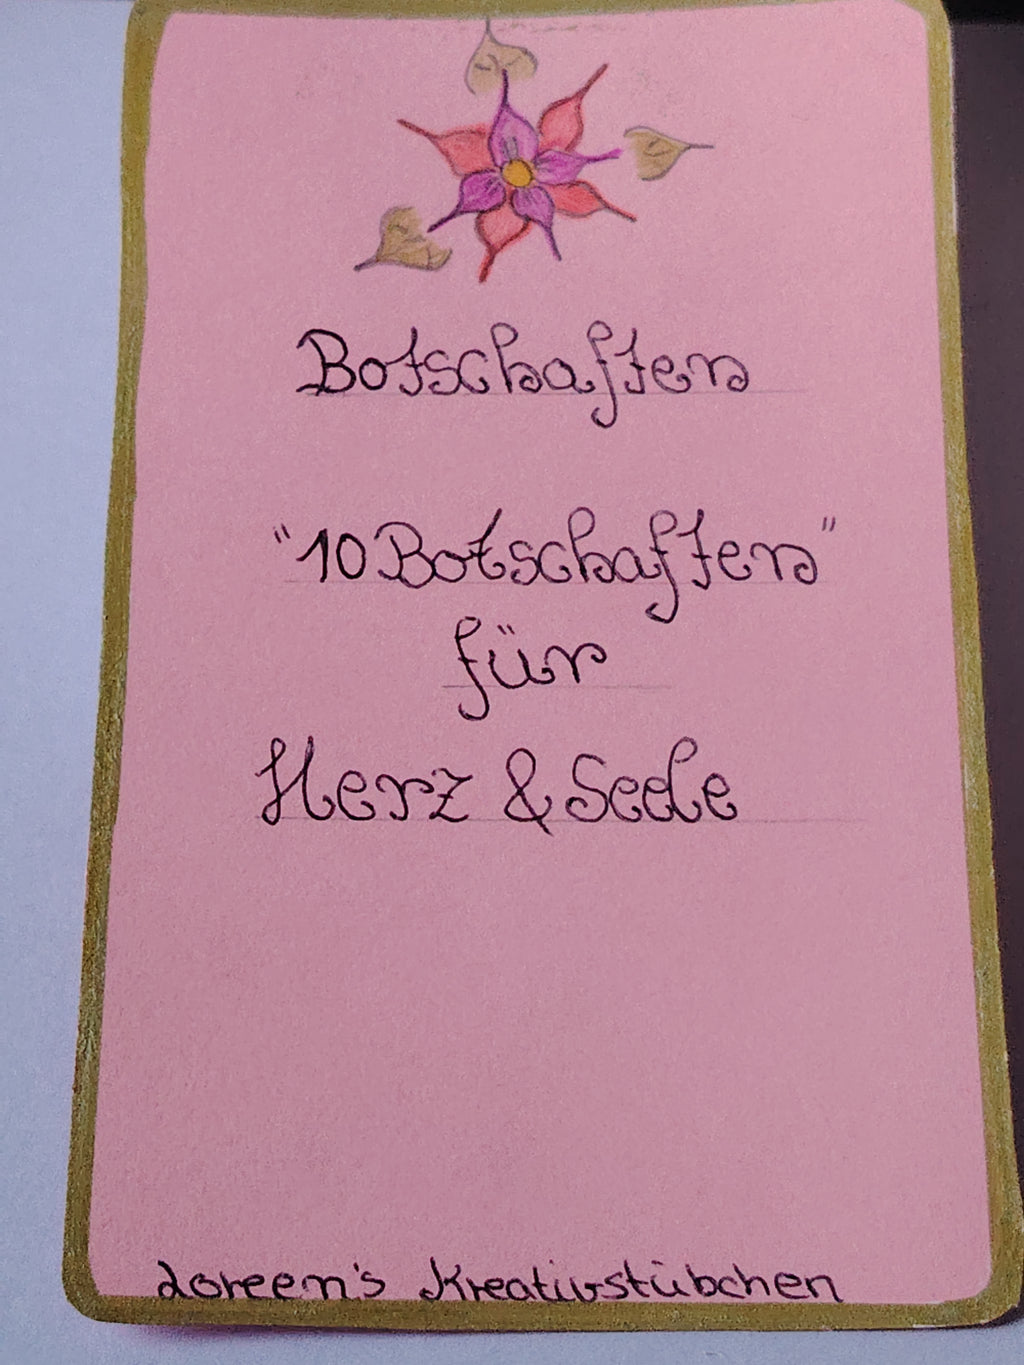 Botschaften
"10 Botschaften"
für
Herz & Seele
Loreem's Kreativstübchen